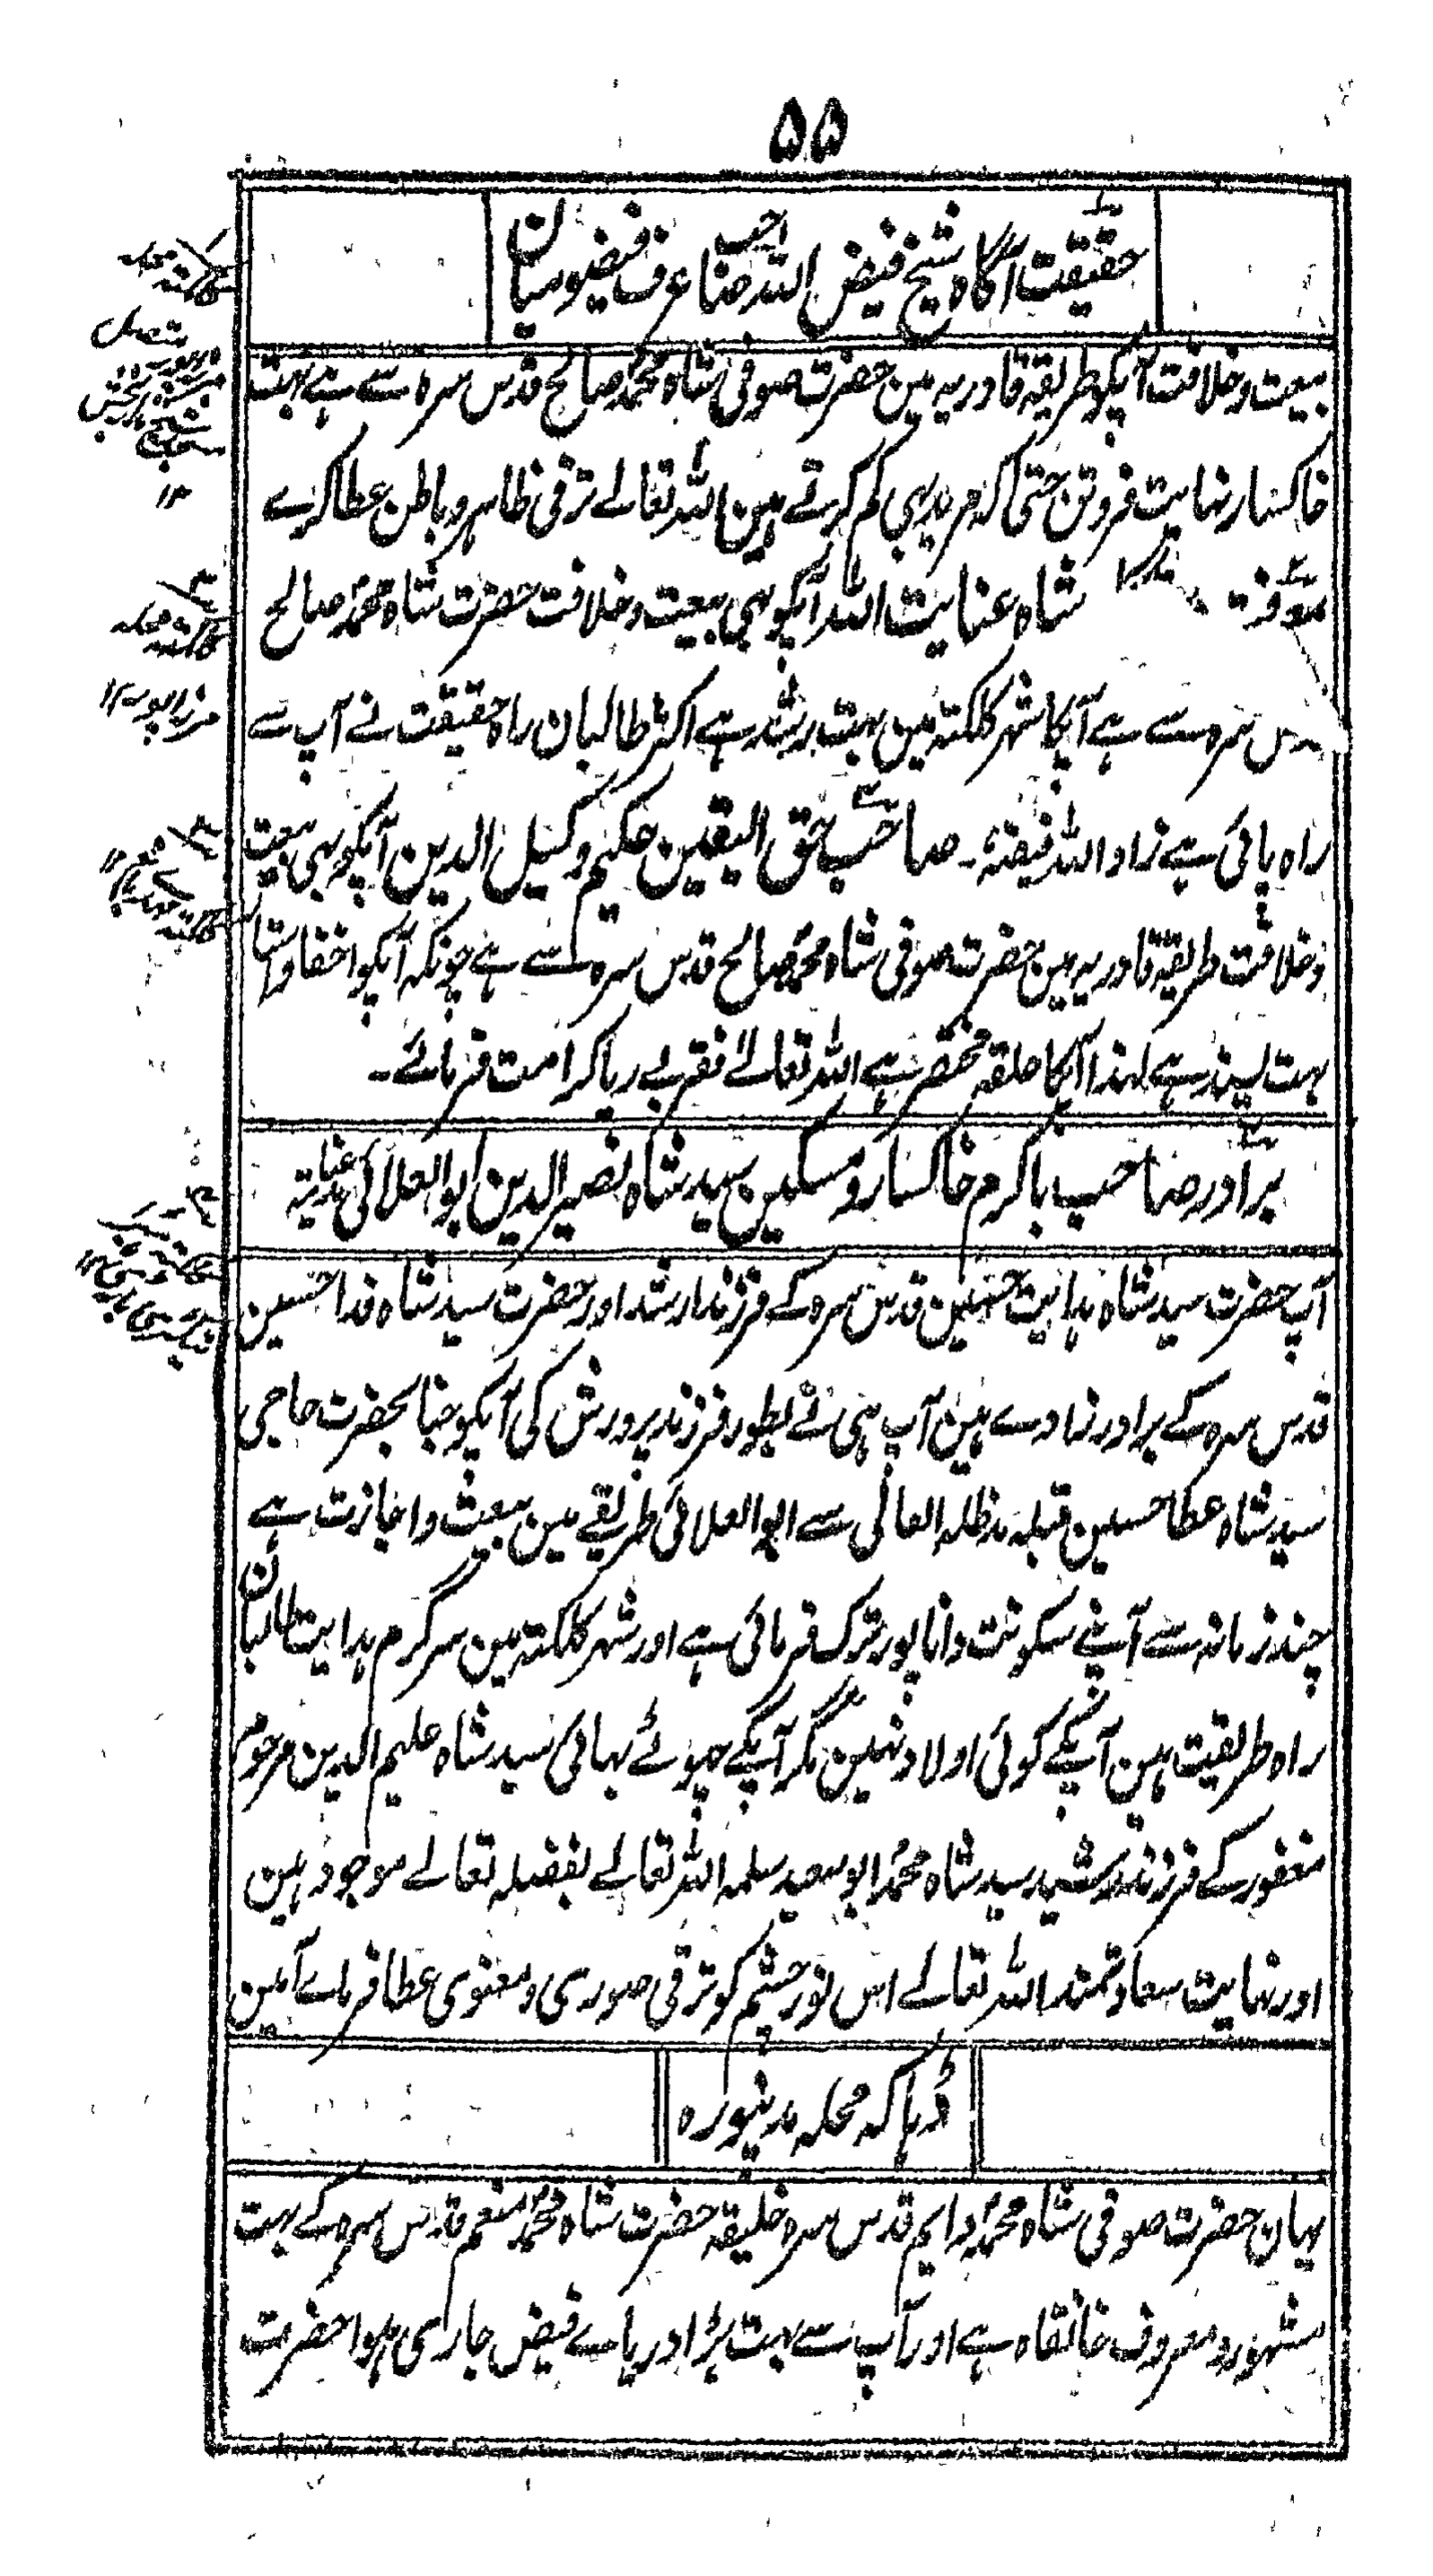 ۵۵
حقیقت آگاہ شیخ فیض اللہ صاحب عرف فیضو میان
بیعت و خلافت آپکو طریقہ قادریہ مین حضرت صوفی شاہ محمد صالح قدس سرہ سے ہے بہت
خاکسار نہایت فروتن حتی کہ مرید بہی کم کرتے ہین اللہ تعالے ترقی ظاہر و باطن عطا کرے
شاہ عنایت اللہ آپکو بہی بیعت و خلافت حضرت شاہ محمد صالح
سرہ سے ہے آپکا شہر کلکتہ مین بہت رشد ہے اکثر طالبان راہ حقیقت نے آپ سے
راہ پائی ہے زاد اللہ فیضہٗ ۔ صاحب حق الیقین حکیم وکیل الدین آپکو بہی بیعت
و خلافت طریقہ قادریہ مین حضرت صوفی شاہ محمد صالح قدس سرہ سے ہے چونکہ آپکو اخفا و استتا
بہت پسند ہے لہذا آپکا حلقہ مختصر ہے اللہ تعالے فقر بے ریا کرامت فرمائے ۔
برادر صاحب باکرم خاکسار و مسکین سید شاہ نصیر الدین ابوالعلائی
آپ حضرت سید شاہ ہدایت حسین قدس سرہ کے فرزند ارشد اور حضرت سید شاہ فدا حسین
قدس سرہ کے برادر زادے ہین آپ ہی نے بطور فرزند پرورش کی آپکو جناب حضرت حاجی
سید شاہ عطا حسین قبلہ مدظلہ العالی سے ابوالعلائی طریقے مین بیعت و اجازت ہے
چند زمانہ سے آپنے سکونت داناپور ترک فرمائی ہے اور شہر کلکتہ مین سرگرم ہدایت طالبان
راہ طریقت ہین آپکے کوئی اولاد نہین مگر آپکے چہوٹے بہائی سید شاہ علیم الدین مرحوم
مغفور کے فرزند رشید سید شاہ محمد ابوسعید سلمہ اللہ تعالے بفضلہ تعالے موجود ہین
اور نہایت سعادتمند اللہ تعالے اس نور چشم کو ترقی صوری و معنوی عطا فرماے آمین
ڈہاکہ محلہ مدینپورہ
یہان حضرت صوفی شاہ محمد دایم قدس سرہ خلیفہ حضرت شاہ محمد منعم قدس سرہ کے بہت
مشہور و معروف خانقاہ ہے اور آپ سے بہت بڑا دریاے فیض جاری ہوا حضرت
کلکتہ محلہ
متصل
۱۲
کلکتہ محلہ
مرزاپور ۱۲